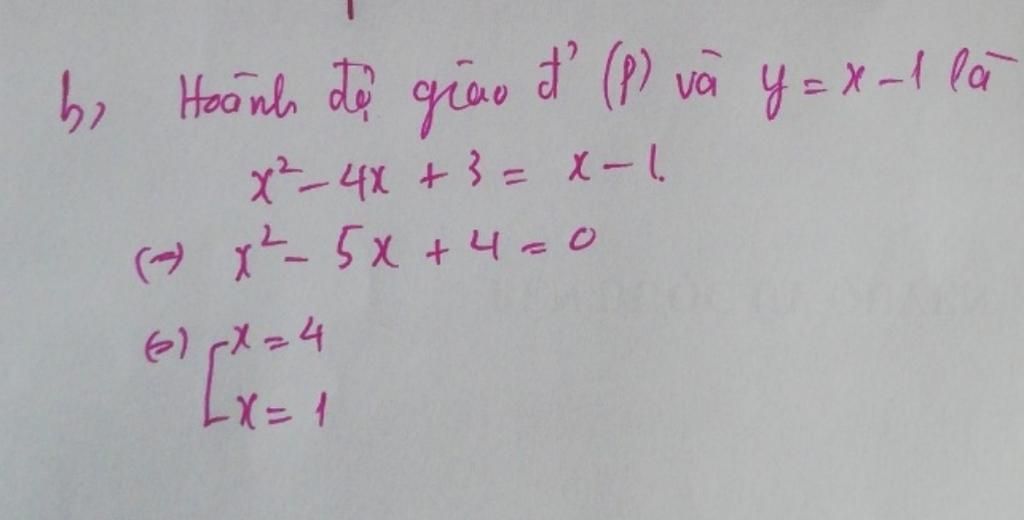 b, Hoành độ giao đ' (P) và y = x - 1 là
x² - 4x + 3 = x - 1.
(=) x² - 5x + 4 = 0
(=) [ x = 4
x = 1